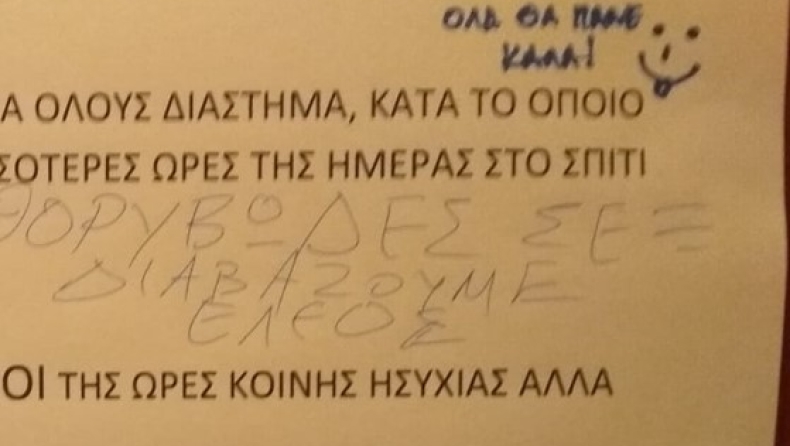 ΟΛΑ ΘΑ ΠΑΝΕ
ΚΑΛΑ!
Α ΟΛΟΥΣ ΔΙΑΣΤΗΜΑ, ΚΑΤΑ ΤΟ ΟΠΟΙΟ
ΣΟΤΕΡΕΣ ΩΡΕΣ ΤΗΣ ΗΜΕΡΑΣ ΣΤΟ ΣΠΙΤΙ
ΘΟΡΥΒΩΔΕΣ ΣΕΞ
ΔΙΑΒΑΖΟΥΜΕ
ΕΛΕΟΣ
ΟΙ ΤΗΣ ΩΡΕΣ ΚΟΙΝΗΣ ΗΣΥΧΙΑΣ ΑΛΛΑ